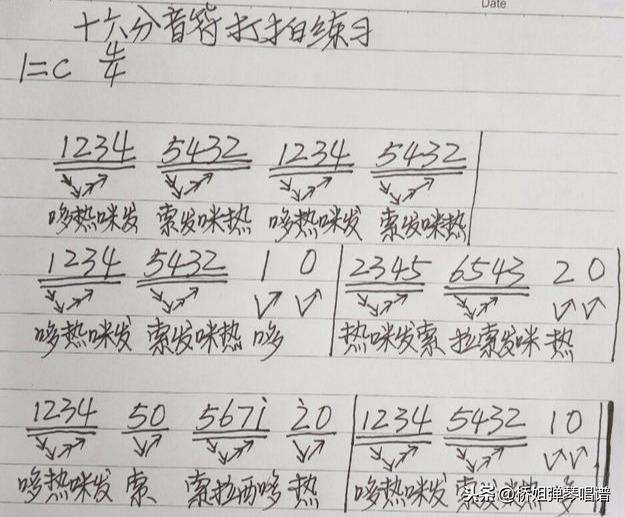 Date
十六分音符打拍练习
1=C 4/4
1234 5432 1234 5432 |
哆热咪发 索发咪热 哆热咪发 索发咪热
1234 5432 1 0 | 2345 6543 2 0 |
哆热咪发 索发咪热 哆 热咪发索 拉索发咪 热
1234 50 567i 2̇0 | 1234 5432 10 ‖
哆热咪发 索 索拉西哆 热 哆热咪发 索发咪热 哆
头条@桥姐弹琴唱谱